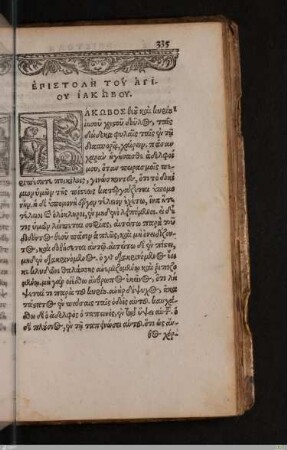 335
ἘΠΙΣΤΟΛῊ ΤΟΥ ἉΓΊ
ΟΥ ἸΑΚΏΒΟΥ.
ΙΑΚΩΒΟΣ θεοῦ καὶ κυρίου
ἰησοῦ χριστοῦ δοῦλος, ταῖς
δώδεκα φυλαῖς ταῖς ἐν τῇ
διασπορᾷ, χαίρειν. πᾶσαν
χαρὰν ἡγήσασθε ἀδελφοί
μου, ὅταν πειρασμοῖς πε
ριπέσητε ποικίλοις, γινώσκοντες, ὅτι τὸ δοκί
μιον ὑμῶν τῆς πίστεως κατεργάζεται ὑπομο
νήν, ἡ δὲ ὑπομονὴ ἔργον τέλειον ἐχέτω, ἵνα ἦτε
τέλειοι καὶ ὁλόκληροι, ἐν μηδενὶ λειπόμενοι. εἰ δέ
τις ὑμῶν λείπεται σοφίας, αἰτείτω παρὰ τοῦ
διδόντος θεοῦ πᾶσιν ἁπλῶς, καὶ μὴ ὀνειδίζον
τος, καὶ δοθήσεται αὐτῷ. αἰτείτω δὲ ἐν πίστει,
μηδὲν διακρινόμενος. ὁ γὰρ διακρινόμενος ἔοι
κε κλύδωνι θαλάσσης ἀνεμιζομένῳ καὶ ῥιπιζο
μένῳ. μὴ γὰρ οἰέσθω ὁ ἄνθρωπος ἐκεῖνος, ὅτι λή
ψεταί τι παρὰ τοῦ κυρίου. ἀνὴρ δίψυχος, ἀκα
τάστατος ἐν πάσαις ταῖς ὁδοῖς αὐτοῦ. καυχά
σθω δὲ ὁ ἀδελφὸς ὁ ταπεινὸς, ἐν τῷ ὕψει αὐτοῦ. ὁ
δὲ πλούσιος, ἐν τῇ ταπεινώσει αὐτοῦ. ὅτι ὡς ἄν
θος χόρ-